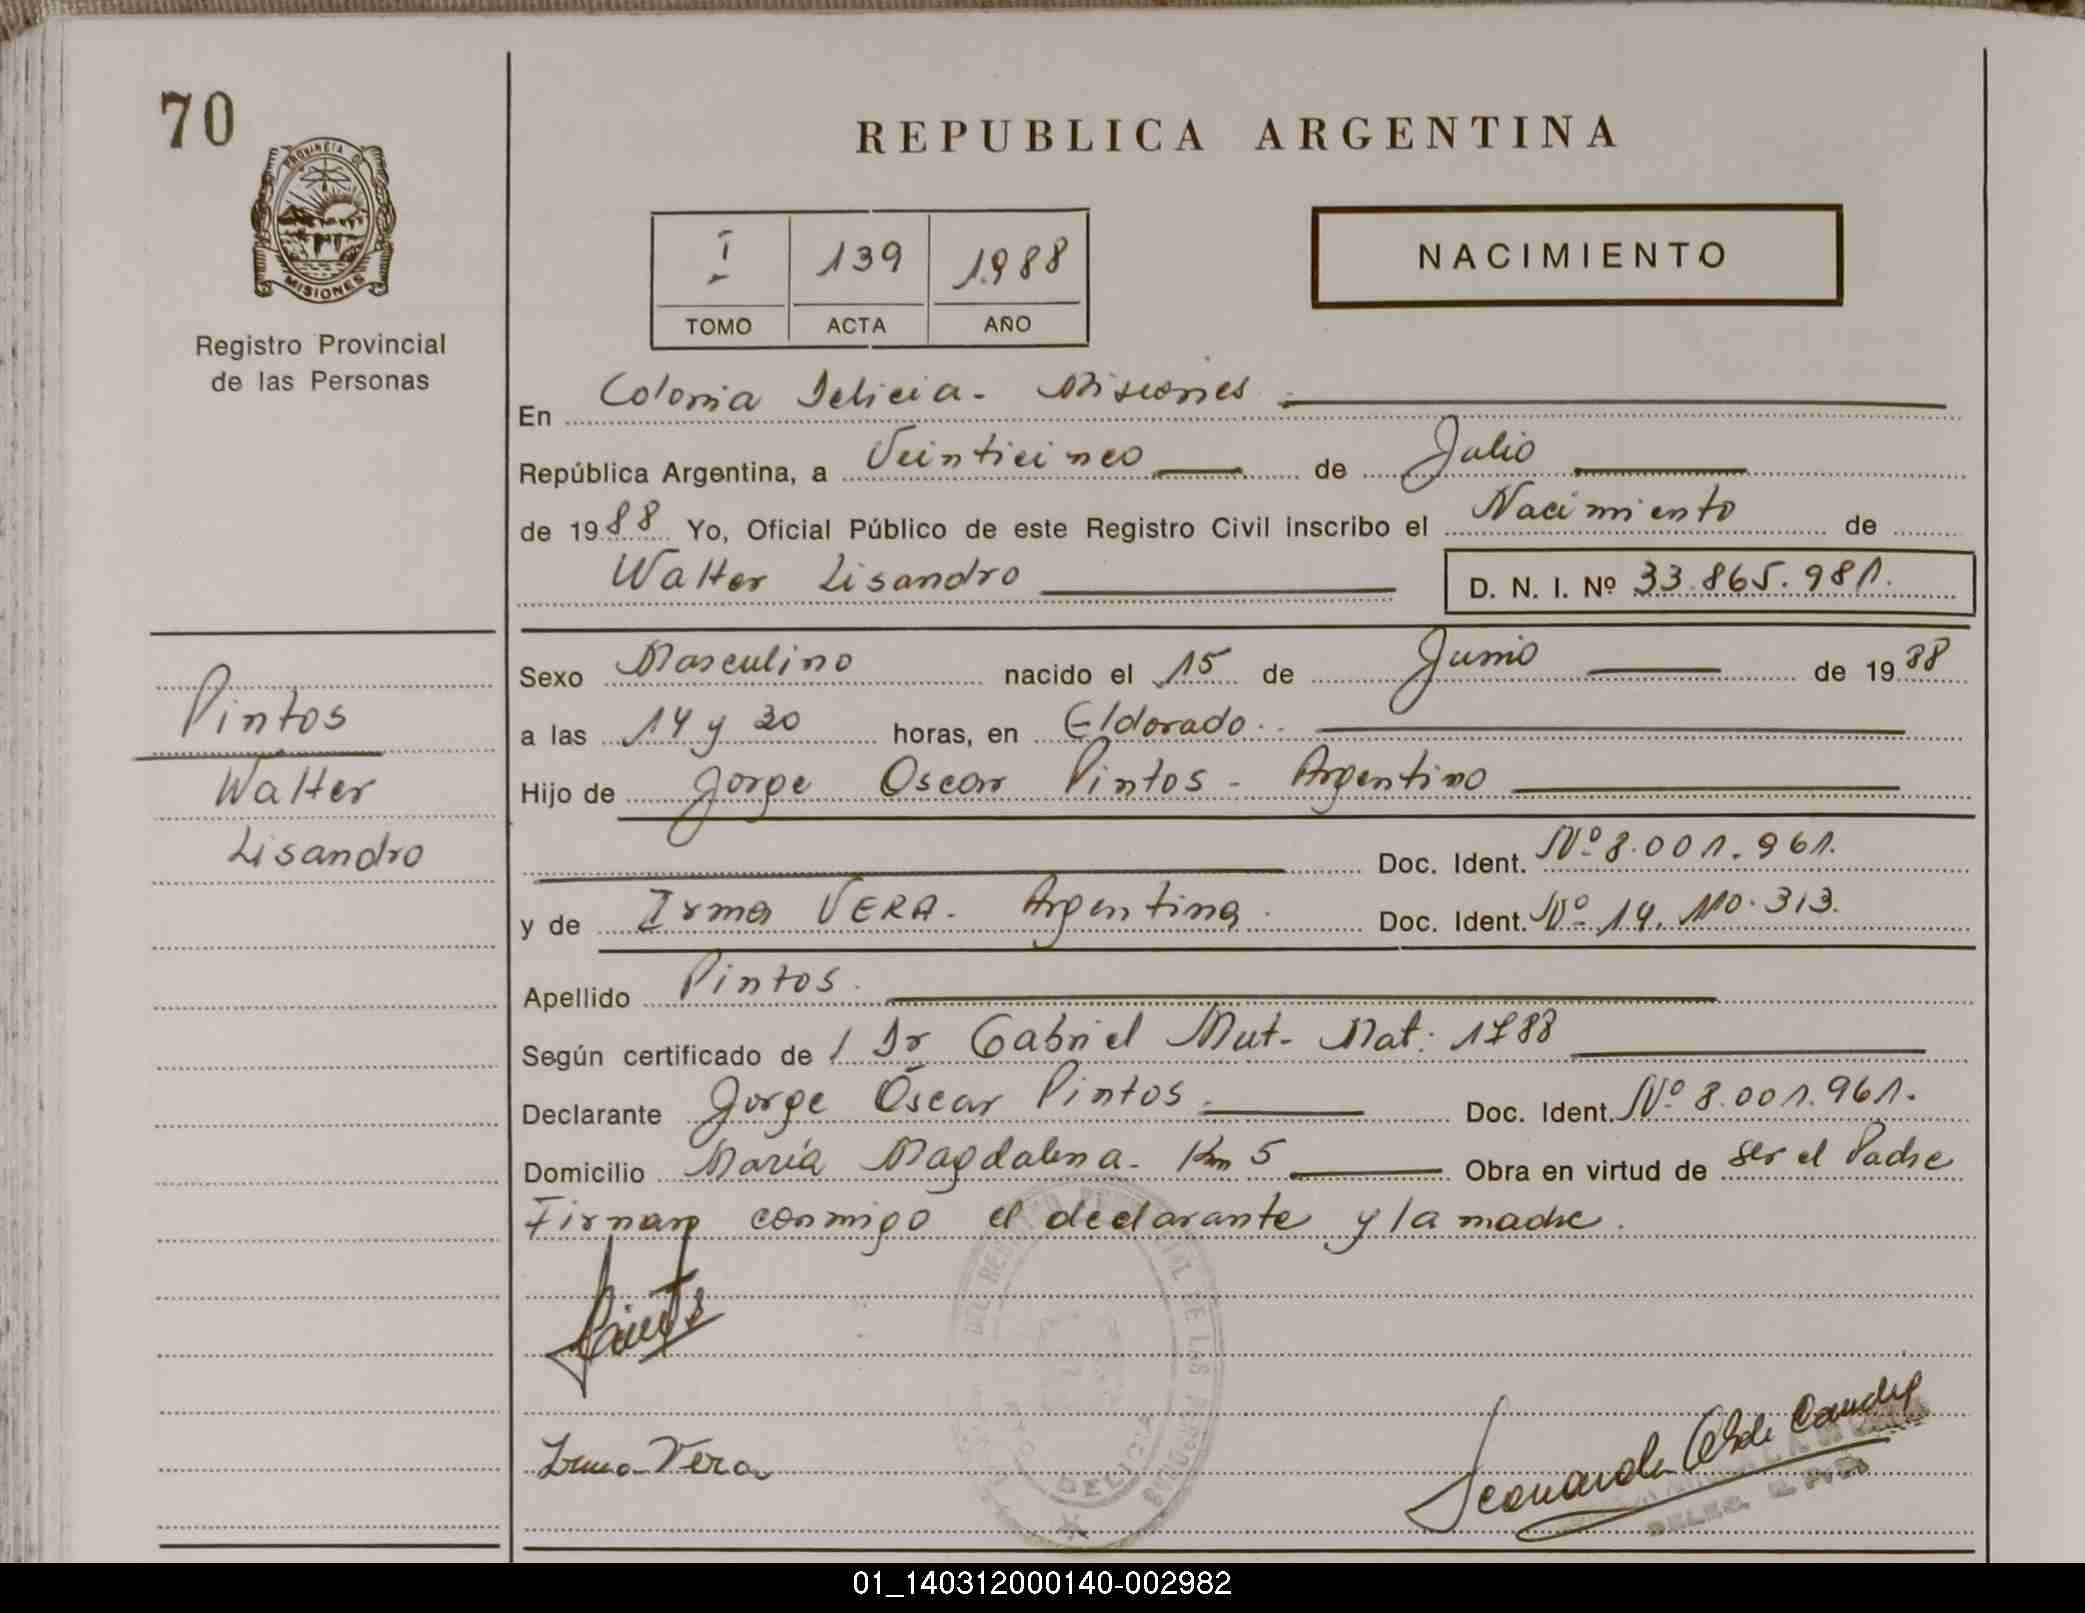 70
PROVINCIA DE
MISIONES
Registro Provincial
de las Personas
REPUBLICA ARGENTINA
I 139 1.988
TOMO ACTA AÑO
NACIMIENTO
En Colonia Delicia - Misiones
República Argentina, a Veinticinco de Julio
de 1988 Yo, Oficial Público de este Registro Civil inscribo el Nacimiento de
Walter Lisandro D. N. I. Nº 33.865.981.
Sexo Masculino nacido el 15 de Junio de 1988
a las 14 y 30 horas, en Eldorado.
Hijo de Jorge Oscar Pintos - Argentino
Doc. Ident. Nº 8.001.961.
y de Irma VERA - Argentina. Doc. Ident. Nº 14.110.313.
Apellido Pintos.
Según certificado de / Dr Gabriel Mut - Mat: 1788
Declarante Jorge Oscar Pintos. Doc. Ident. Nº 8.001.961.
Domicilio María Magdalena - Km 5 Obra en virtud de ser el Padre
Firman conmigo el declarante y la madre.
Pintos
Walter
Lisandro
Pintos
Irma Vera
DELICIA
01_140312000140-002982